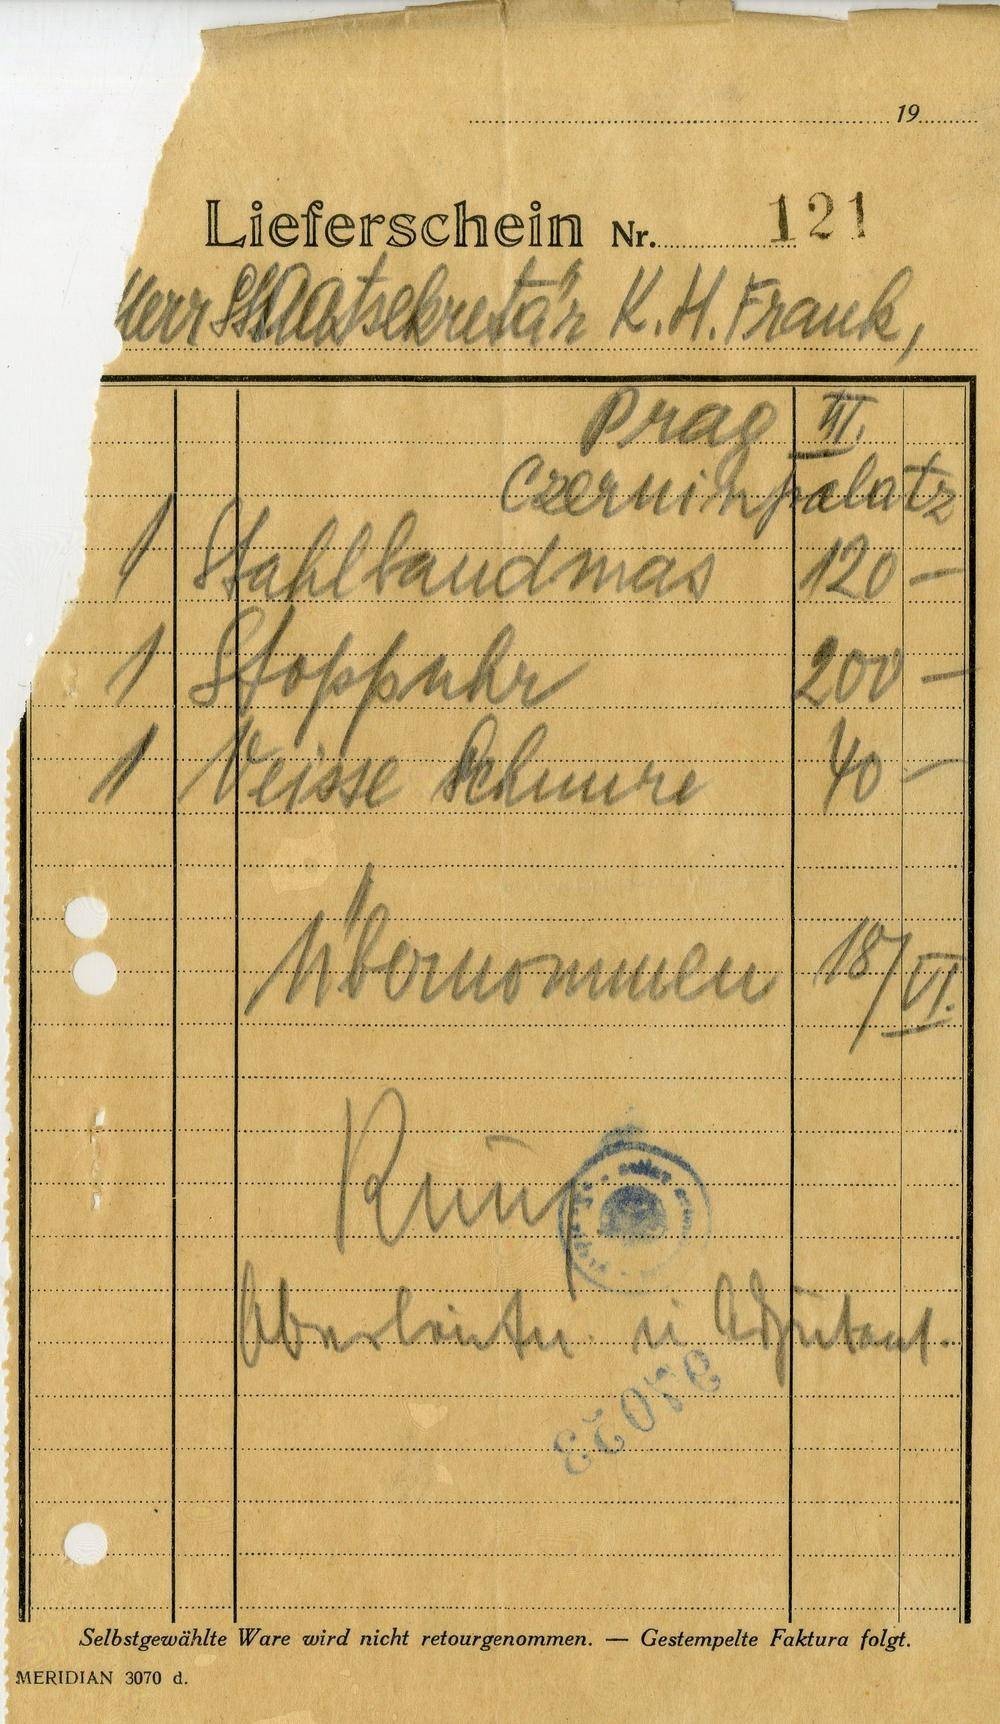 19
Lieferschein Nr. 121
Herr Staatsekretär K. H. Frank,
Prag III.
Czerninpalatz
1 Stahlbandmas 120 —
1 Stoppuhr 200 —
1 Veisse Schnure 40 —
Übernommen 18/VI.
Oberleutn. u Adjutant.
Selbstgewählte Ware wird nicht retourgenommen. — Gestempelte Faktura folgt.
MERIDIAN 3070 d.